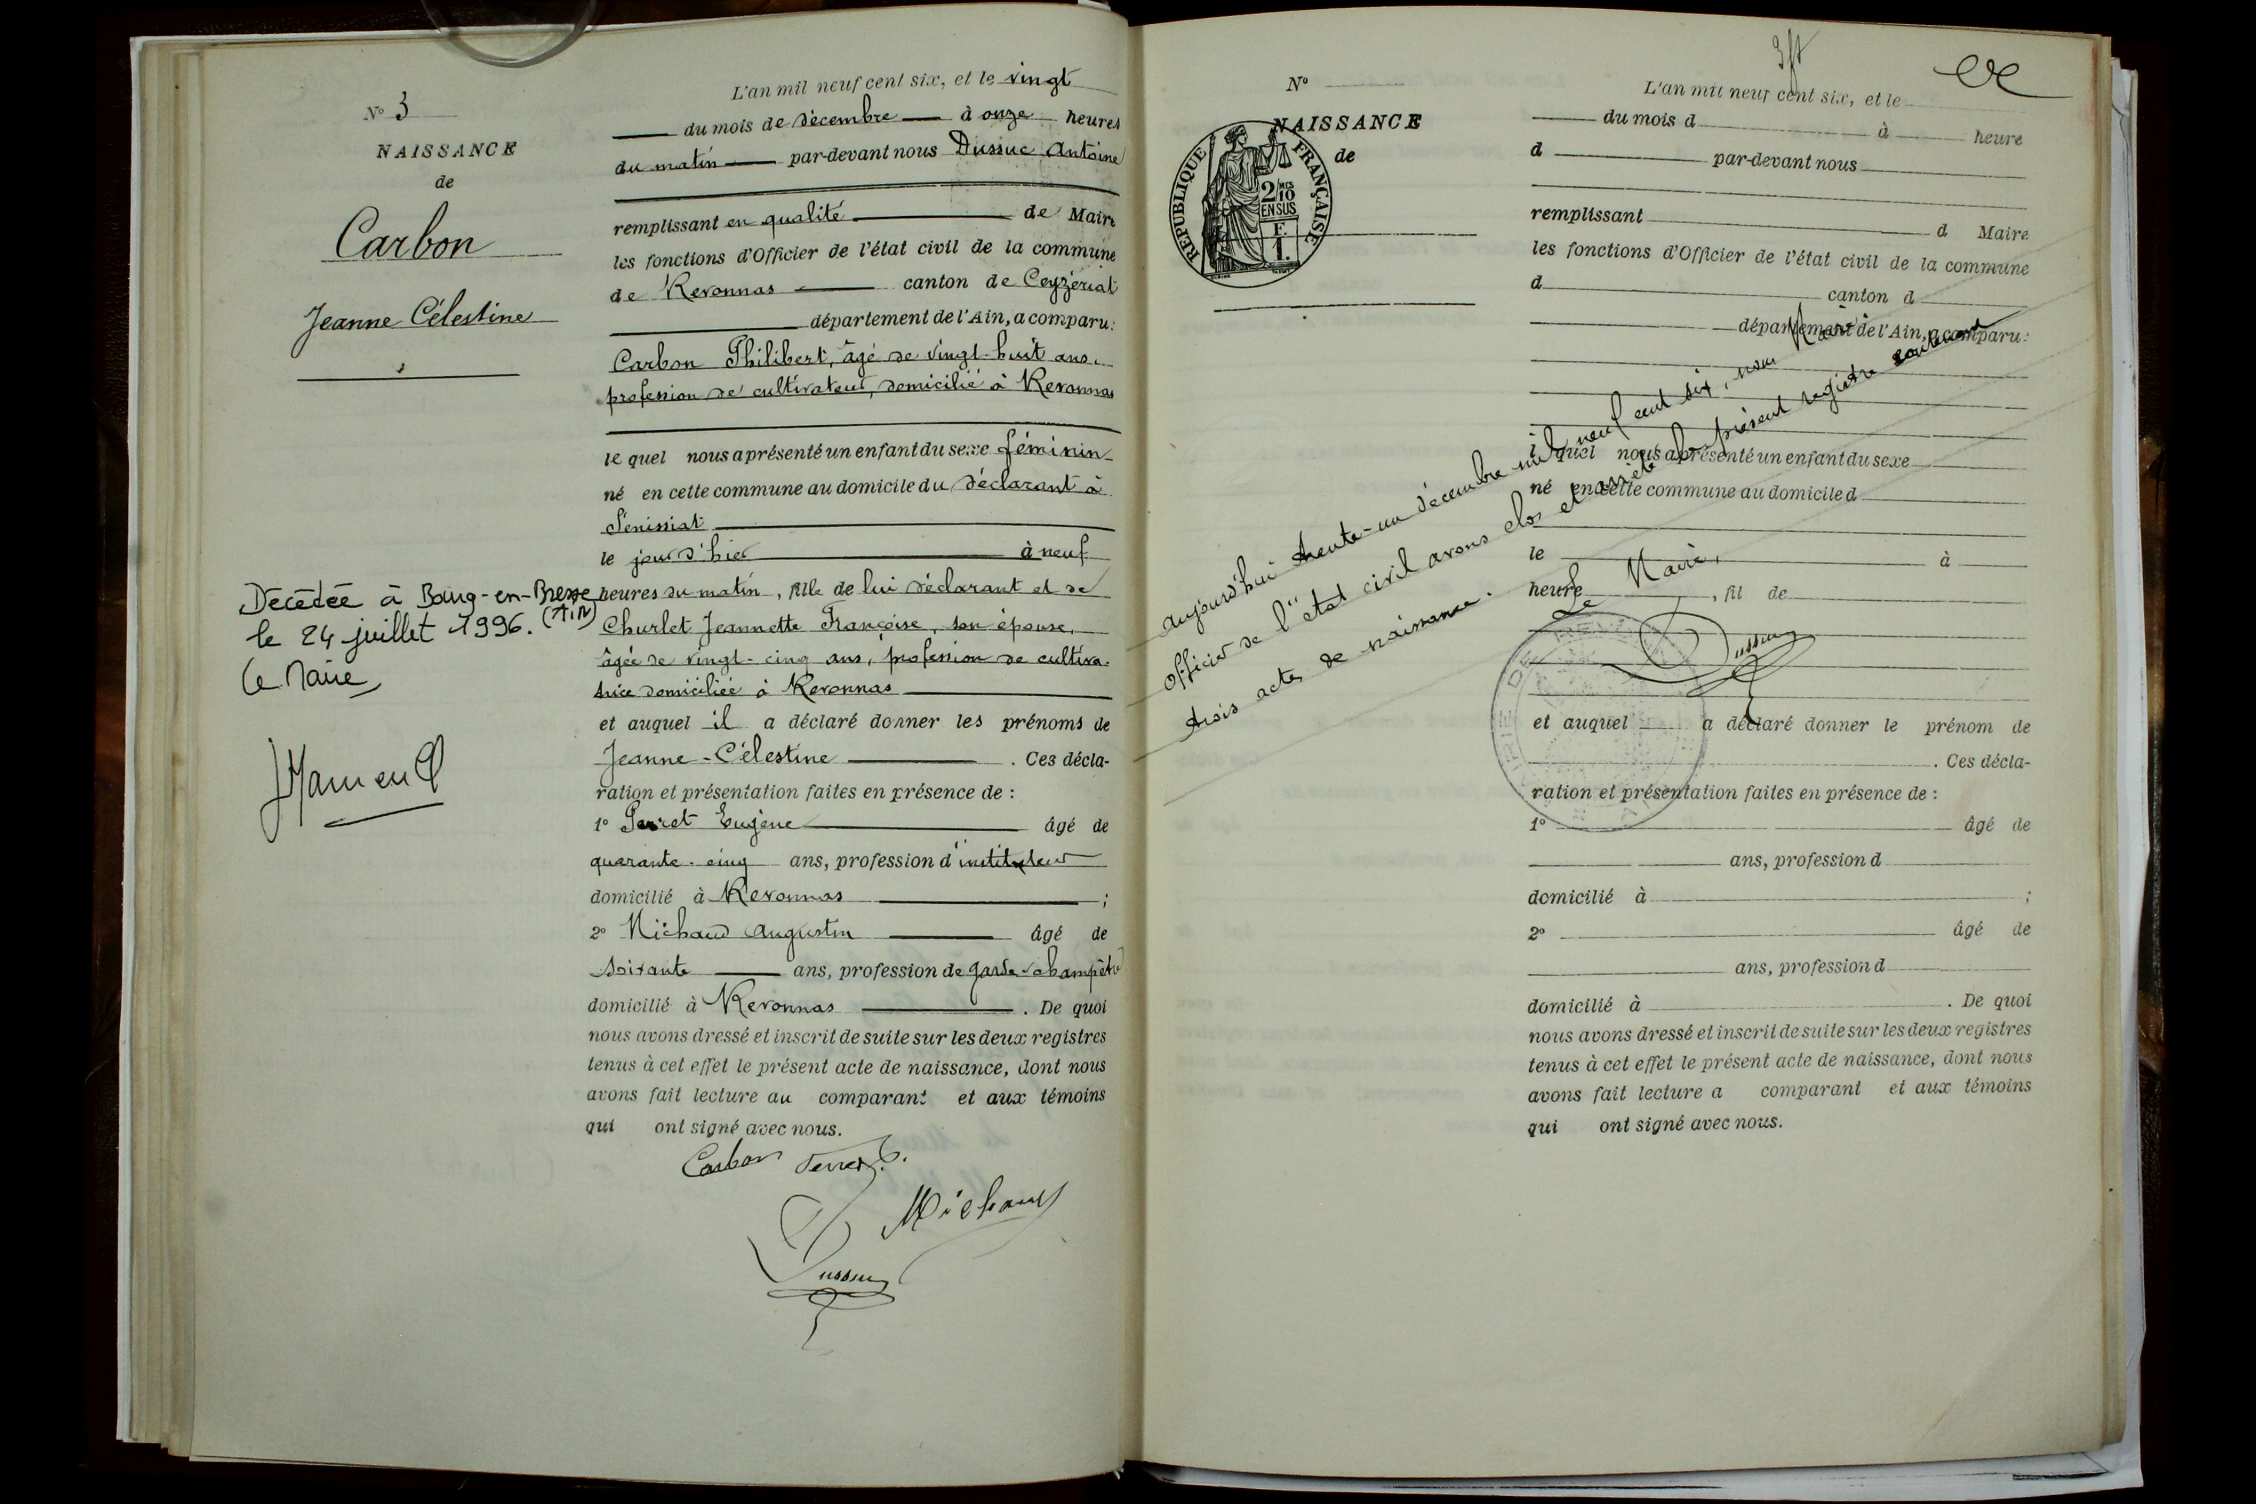 N° 3
NAISSANCE
de
Carbon
Jeanne Célestine
Décédée à Bourg-en-Bresse
(Ain)
le 24 juillet 1996.
Le Maire,
L'an mil neuf cent six, et le vingt
du mois de décembre à onze heures
du matin par-devant nous Dussuc Antoine
remplissant en qualité de Maire
les fonctions d'Officier de l'état civil de la commune
de Revonnas canton de Ceyzériat
département de l'Ain, a comparu:
Carbon Philibert, âgé de vingt-huit ans,
profession de cultivateur, domicilié à Revonnas
lequel nous a présenté un enfant du sexe féminin
né en cette commune au domicile du déclarant à
Sénissiat
le jour d'hier à neuf
heures du matin, fille de lui déclarant et de
Churlet Jeannette Françoise, son épouse,
âgée de vingt-cinq ans, profession de cultiva-
trice domiciliée à Revonnas
et auquel il a déclaré donner les prénoms de
Jeanne-Célestine . Ces décla-
ration et présentation faites en présence de :
1° Perret Eugène âgé de
quarante-cinq ans, profession d'instituteur
domicilié à Revonnas ;
2° Michaud Augustin âgé de
soixante ans, profession de garde-champêtre
domicilié à Revonnas . De quoi
nous avons dressé et inscrit de suite sur les deux registres
tenus à cet effet le présent acte de naissance, dont nous
avons fait lecture au comparant et aux témoins
qui ont signé avec nous.
Carbon Perret E.
Michaud
Dussuc
N°
NAISSANCE
de
REPUBLIQUE FRANÇAISE
2/10 MES
EN SUS
F.
1.
L'an mil neuf cent six, et le
du mois d à heure
d par-devant nous
remplissant d Maire
les fonctions d'Officier de l'état civil de la commune
d canton d
département de l'Ain, a comparu:
lequel nous a présenté un enfant du sexe
né en cette commune au domicile d
le à
heure , fil de
et auquel a déclaré donner le prénom de
. Ces décla-
ration et présentation faites en présence de :
1° âgé de
ans, profession d
domicilié à ;
2° âgé de
ans, profession d
domicilié à . De quoi
nous avons dressé et inscrit de suite sur les deux registres
tenus à cet effet le présent acte de naissance, dont nous
avons fait lecture a comparant et aux témoins
qui ont signé avec nous.
Aujourd'hui trente-un décembre mil neuf cent six, nous Maire
Officier de l'état civil avons clos et arrêté le présent registre contenant
trois actes de naissance.
Le Maire,
Dussuc
MAIRIE DE